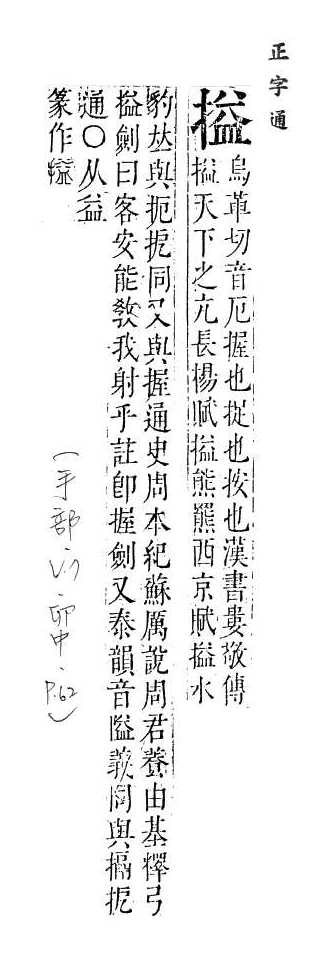 正字通
搤
烏革切音厄握也捉也按也漢書婁敬傳
搤天下之亢長楊賦搤熊羆西京賦搤水
豹𠀤與扼挖同又與握通史周本紀蘇厲說周君養由基釋弓
搤劍曰客安能教我射乎註卽握劍又泰韻音隘義同與搹挖
通○从益
篆作
(手部.
卯中.
P.62)